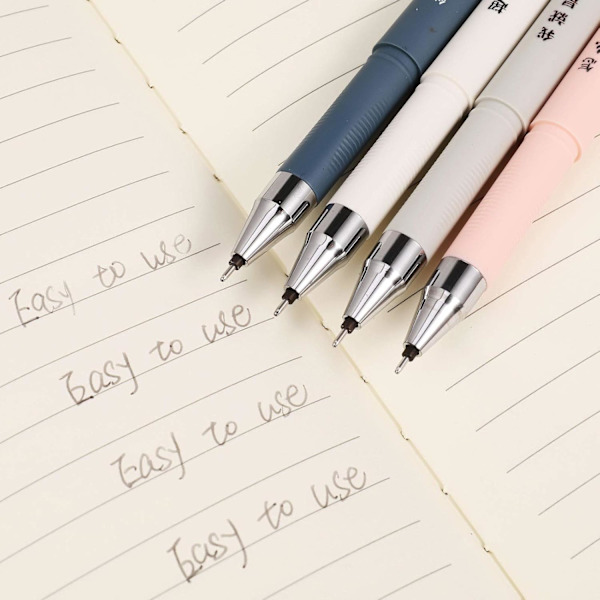 Easy to use
Easy to use
Easy to use
Easy to use
超
我就是
怎么